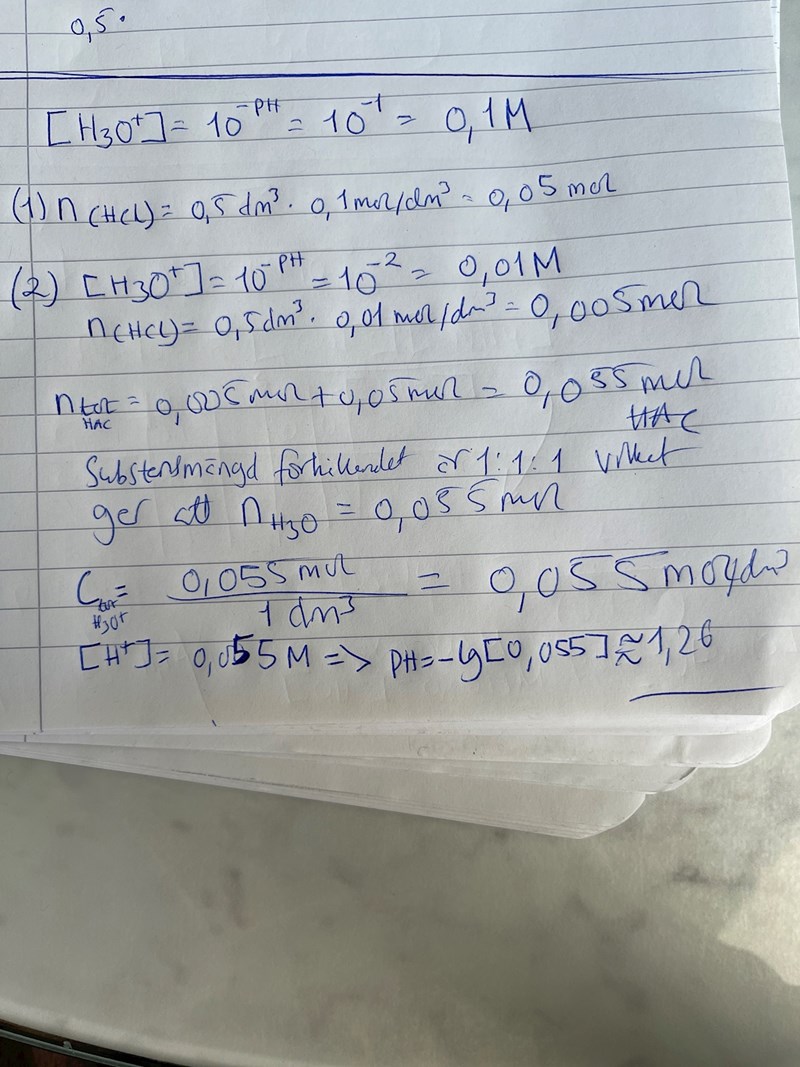 0,5·
[H3O+] = 10^-PH = 10^-1 = 0,1M
(1) n(HCl) = 0,5 dm³ · 0,1 mol/dm³ = 0,05 mol
(2) [H3O+] = 10^-PH = 10^-2 = 0,01M
n(HCl) = 0,5 dm³ · 0,01 mol/dm³ = 0,005 mol
n tot HAC = 0,005 mol + 0,05 mol = 0,055 mol
HAC
Substensmängd förhållendet är 1:1:1 vilket
ger att nH3O = 0,055 mol
C tot H3O+ = 0,055 mol / 1 dm³ = 0,055 mol/dm³
[H+] = 0,055 M => PH = -lg[0,055] ≈ 1,26